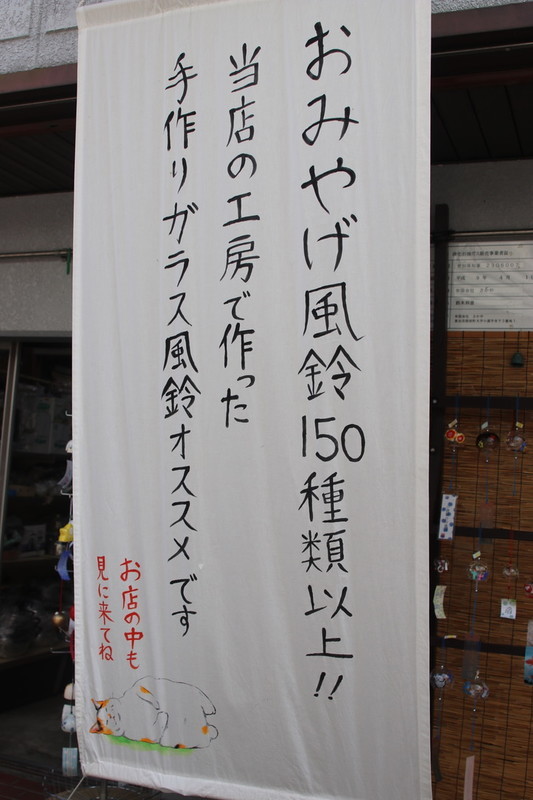 おみやげ風鈴150種類以上!!
当店の工房で作った
手作りガラス風鈴オススメです
お店の中も
見に来てね